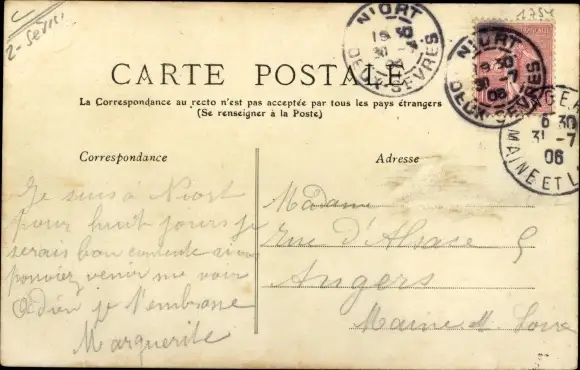 2-Sèvr.
1754
NIORT
9 30
31 -7
06
DEUX-SÈVRES
NIORT
9 30
31 -7
06
DEUX-SÈVRES
6 30
31 -7
06
MAINE ET L
CARTE POSTALE
La Correspondance au recto n'est pas acceptée par tous les pays étrangers
(Se renseigner à la Poste)
Correspondance
Adresse
Je suis à Niort
pour huit jours je
serais bien contente si vous
pouviez venir me voir
Adieu je t'embrasse
Marguerite
Madame
Rue d'Alsace 5
Angers
Maine et Loire